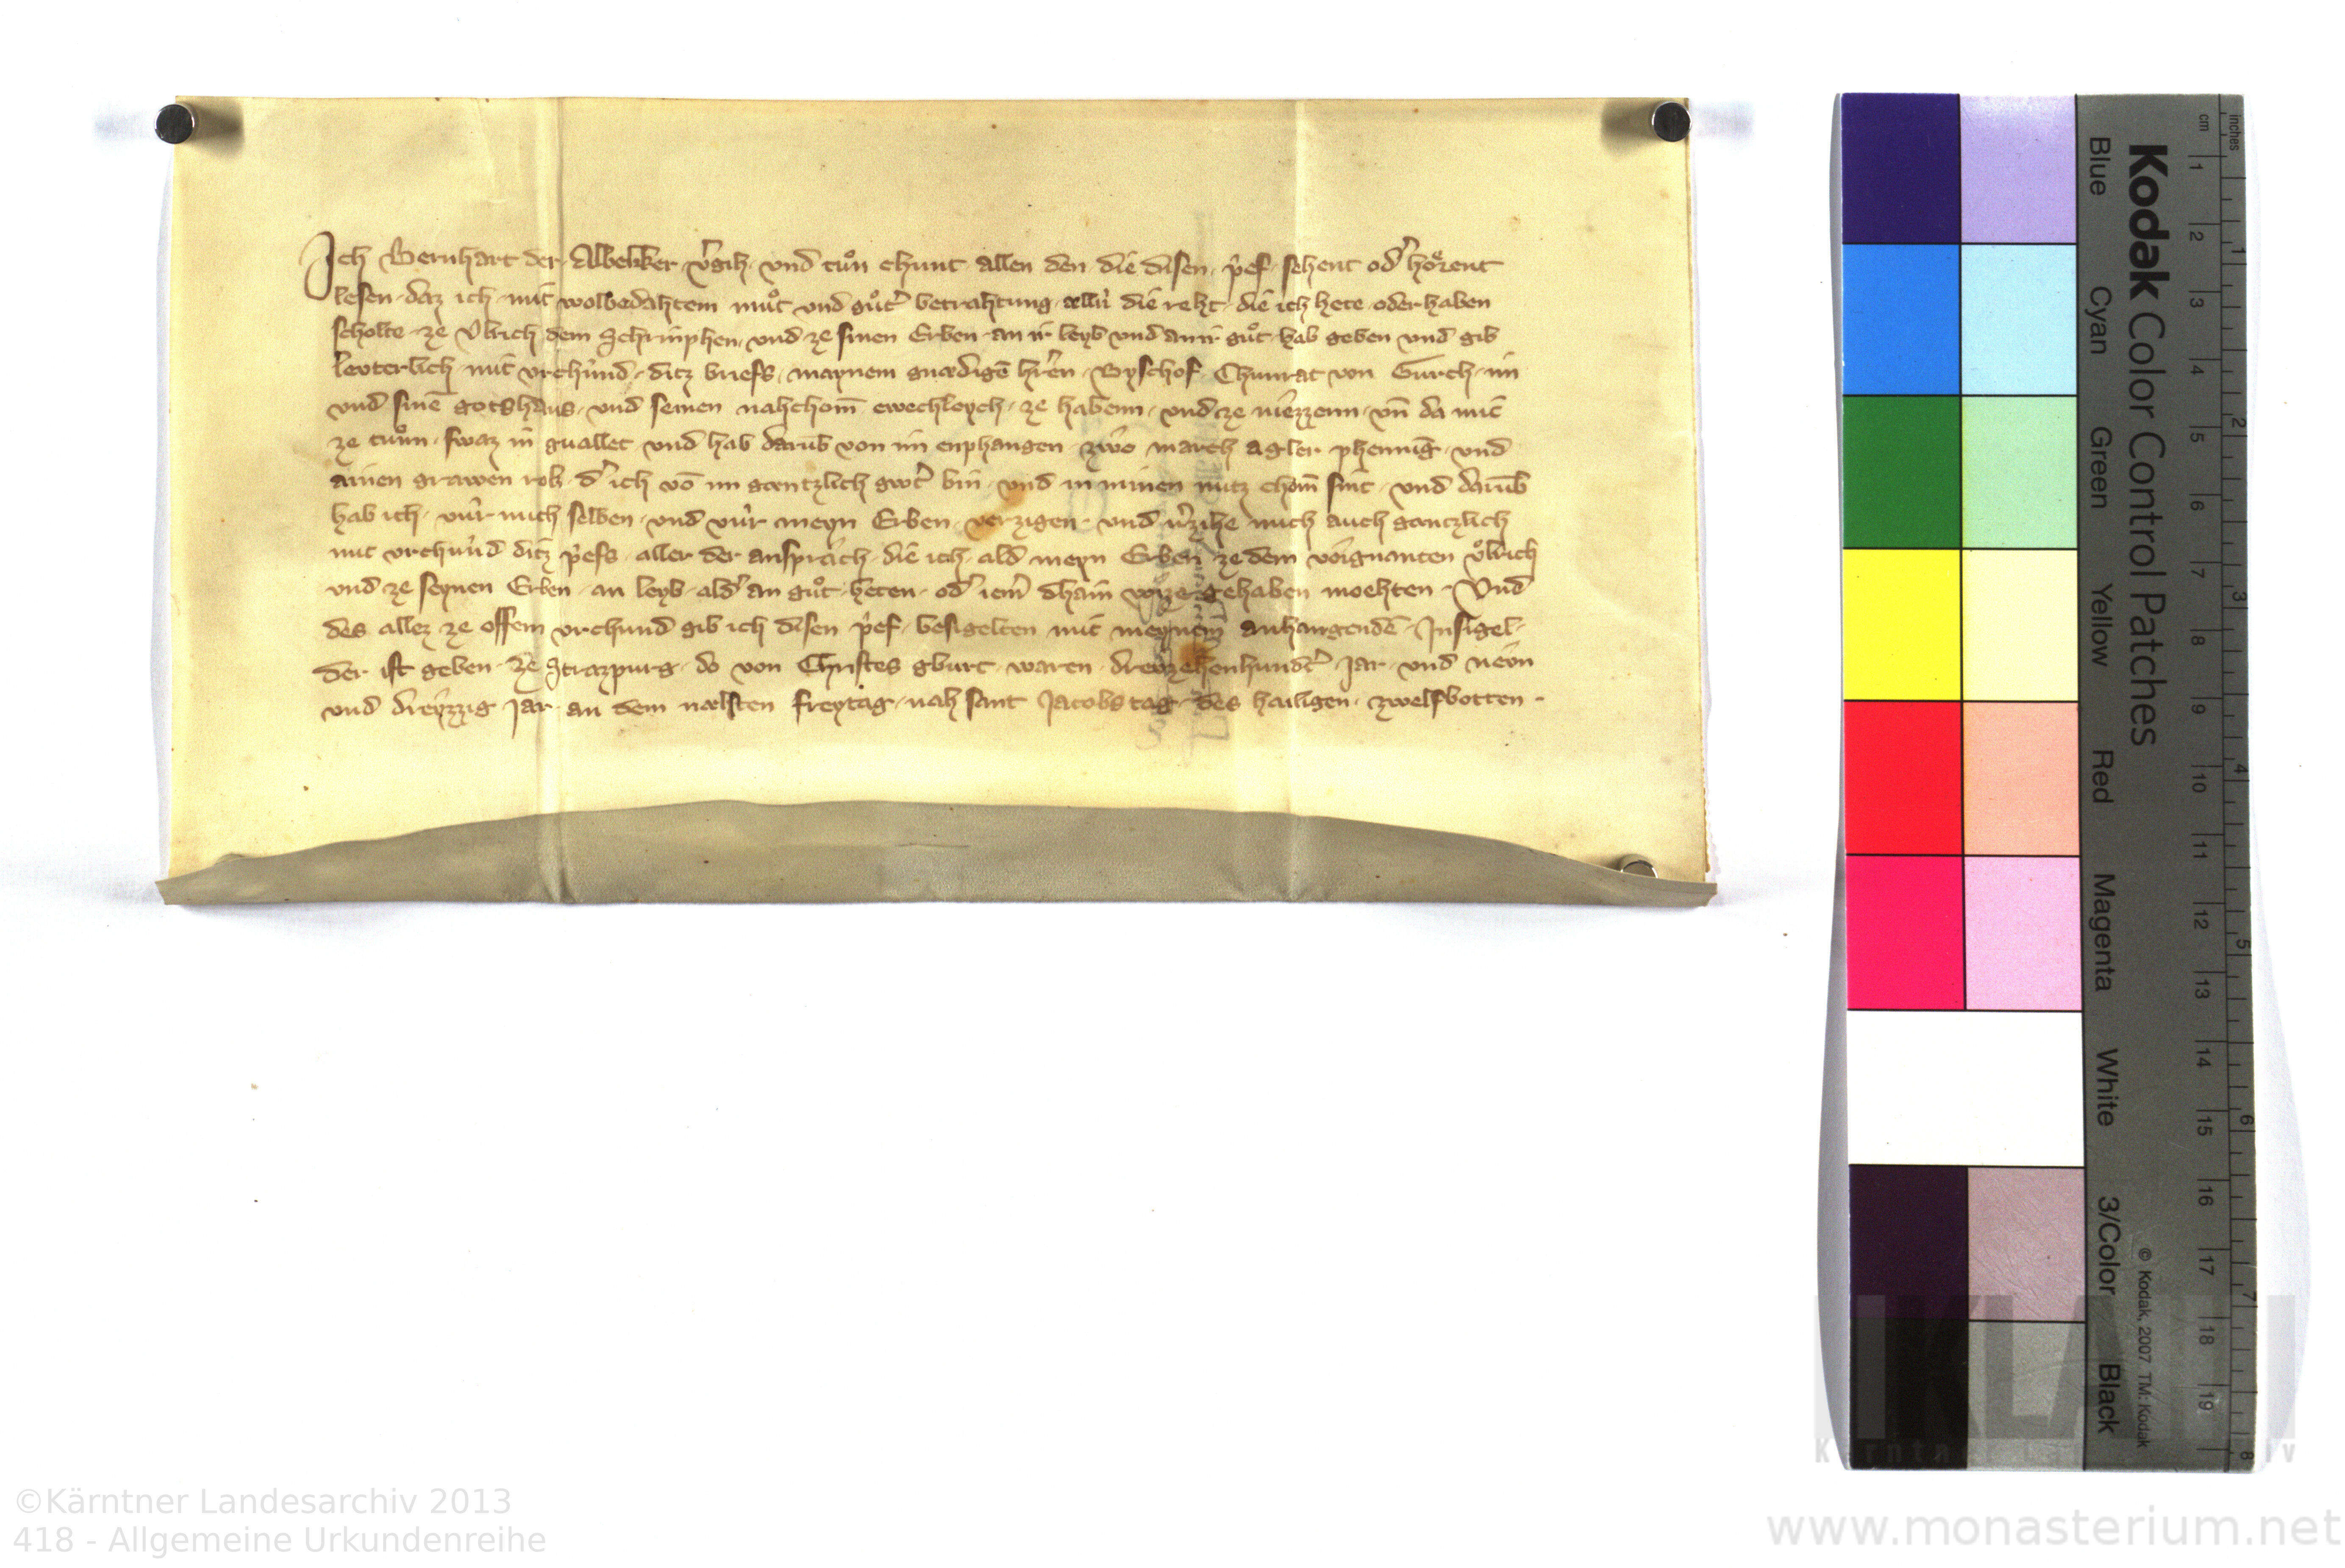 Ich Bernhart der Albekker v̾gih · vnd tuͦn chunt · allen den · die disen · p̾ef · sehent od̾ hoͤrent
lesen · daz ich · mit wolbedahtem muͦt vnd guͦt̾ betrahtung · ællú die reht · die ich hete · oder haben
scholte · ze Vlrich dem Schrimphen · vnd ze sinen Erben · an ir leyb vnd an ir guͦt · hab geben vnd gib
levterlich · mit vrchúnd · ditz briefs · maynem gnædigē h̾ren · Byschof · Chunrat von Gurch · im
vnd sinē gotshaus · vnd seinen nahchom̄ ewechleych · ze habenn · vnd ze niezzenn · vn̄ da mit
ze tuͦnn · swaz in guallet · vnd hab darūb von im enphangen · zwo march agler phennīg · vnd
ainen grawen rok · d̾ ich vō im gæntzlich gwt̾ bin · vnd in minen nutz chom̄ sint · vnd darūb
hab ich · vúr mich selben · vnd vúr meyn Erben · verzigen · vnd v̾zihe mich auch gæntzlich
mit vrchúnd ditz p̾efs · aller der ansprach · die ich · ald meyn Erben ze dem vorgnanten vͦlrich
vnd ze seynen Erben · an leyb · ald̾ an guͦt · heten · od̾ iem̾ dhain gehaben moehten · Vnd
des allez ze offem vrchund gib ich disen p̾ef · besigelten mit meynem anhangendē · Insigel ·
der ist geben · ze Strazpurg · do von Christes gburt · waren · drewzehenhundt̾ · jar · vnd nevn
vnd dreyzzig · jar · an dem næhsten freytag · nah sant Jacobs tag · des hailigen · zwelfbotten ·
Kodak Color Control Patches
Blue Cyan Green Yellow Red Magenta White 3/Color Black
© Kodak, 2007 TM: Kodak
cm 1 2 3 4 5 6 7 8 9 10 11 12 13 14 15 16 17 18 19
inches 1 2 3 4 5 6 7 8
KLA
Kärntner Landesarchiv
©Kärntner Landesarchiv 2013
418 - Allgemeine Urkundenreihe
www.monasterium.net